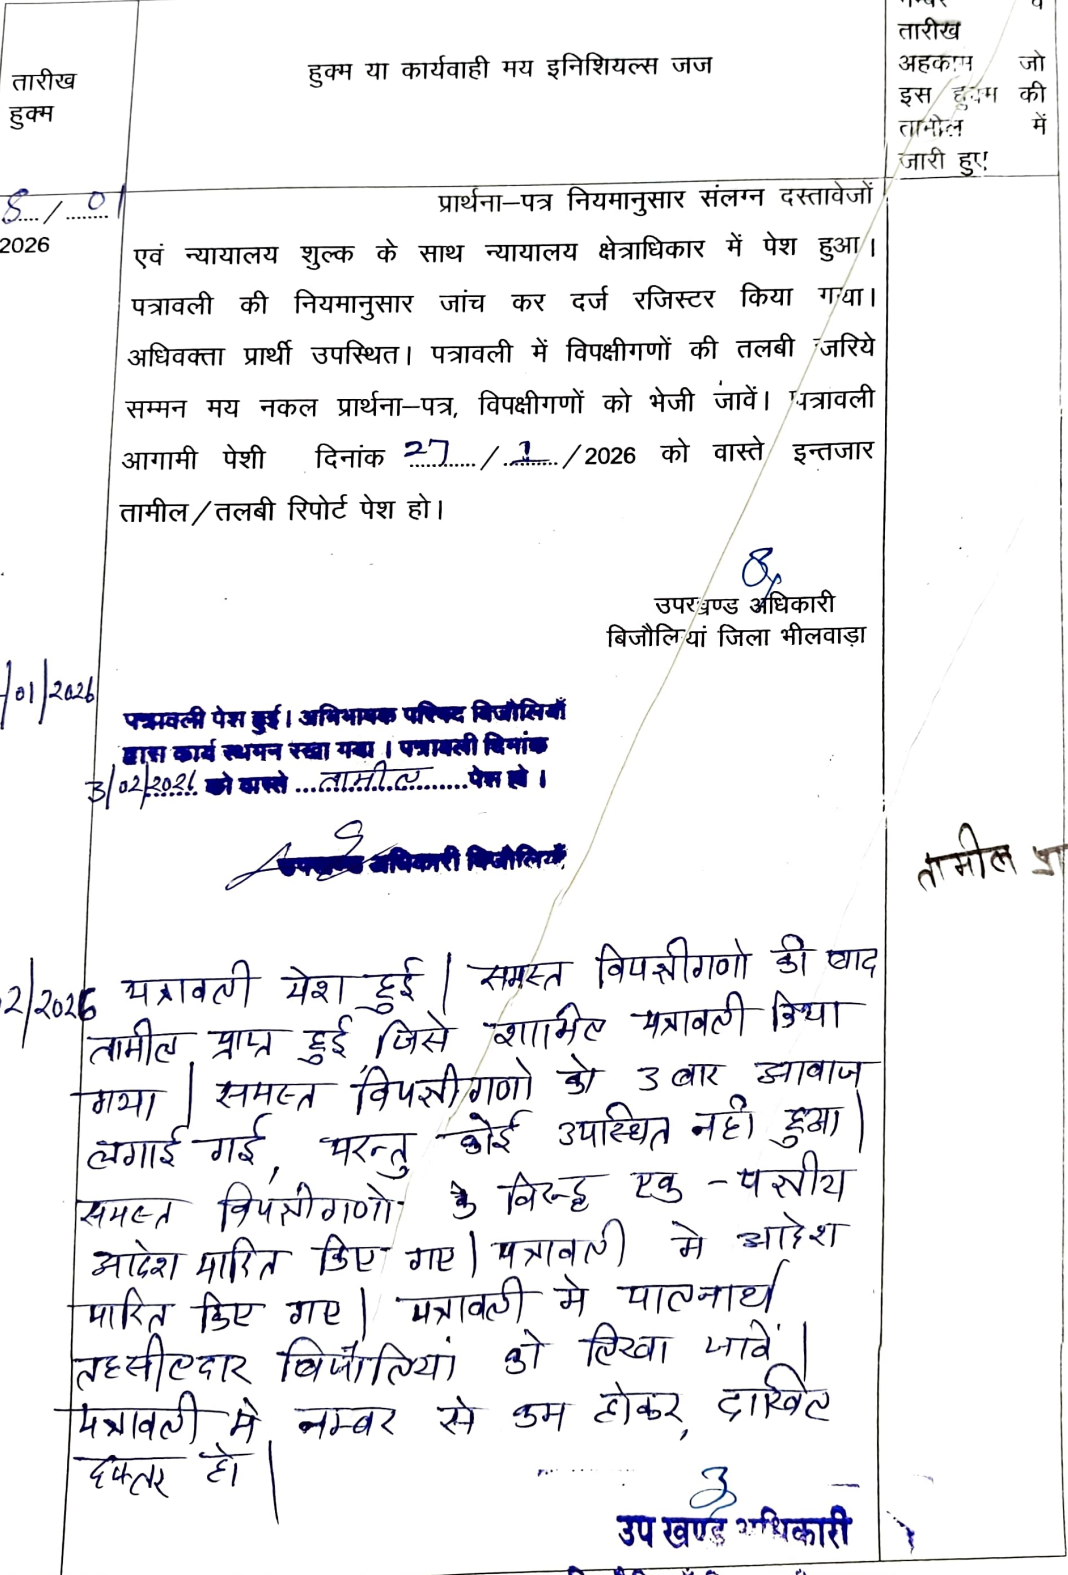 तारीख
हुक्म
हुक्म या कार्यवाही मय इनिशियल्स जज
नम्बर व
तारीख
अहकाम जो
इस हुक्म की
तामील में
जारी हुए
8/01
2026
प्रार्थना–पत्र नियमानुसार संलग्न दस्तावेजों
एवं न्यायालय शुल्क के साथ न्यायालय क्षेत्राधिकार में पेश हुआ।
पत्रावली की नियमानुसार जांच कर दर्ज रजिस्टर किया गया।
अधिवक्ता प्रार्थी उपस्थित। पत्रावली में विपक्षीगणों की तलबी जरिये
सम्मन मय नकल प्रार्थना–पत्र, विपक्षीगणों को भेजी जावें। पत्रावली
आगामी पेशी दिनांक 27/1/2026 को वास्ते इन्तजार
तामील/तलबी रिपोर्ट पेश हो।
उपखण्ड अधिकारी
बिजौलियां जिला भीलवाड़ा
/01/2026
पत्रावली पेश हुई। अभिभाषक परिषद बिजौलियाँ
द्वारा कार्य स्थगन रखा गया। पत्रावली दिनांक
3/02/2026 को वास्ते ...तामील... पेश हो।
उपखण्ड अधिकारी बिजौलियाँ
तामील
2/2026 पत्रावली पेश हुई। समस्त विपक्षीगणो की बाद
तामील प्राप्त हुई, जिसे शामिल पत्रावली किया
गया। समस्त विपक्षीगणो को 3 बार आवाज
लगाई गई, परन्तु कोई उपस्थित नही हुआ।
समस्त विपक्षीगणो के विरूद्ध एक-पक्षीय
आदेश पारित किए गए। पत्रावली मे आदेश
पारित किए गए। पत्रावली मे पालनार्थ
तहसीलदार बिजौलियां को लिखा जावें।
पत्रावली मे नम्बर से कम होकर, दाखिल
दफ्तर हो।
उप खण्ड अधिकारी